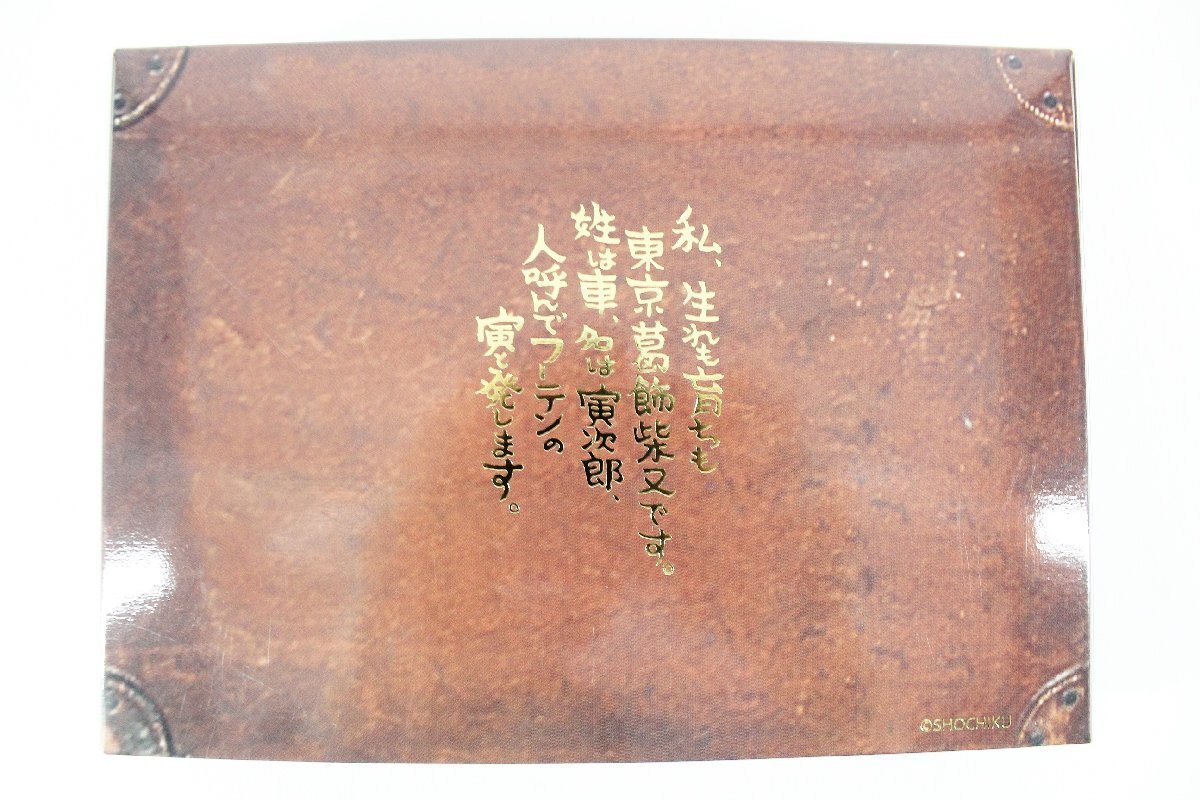 私、生れも育ちも
東京葛飾柴又です。
姓は車、名は寅次郎、
人呼んでフーテンの
寅と発します。
©SHOCHIKU